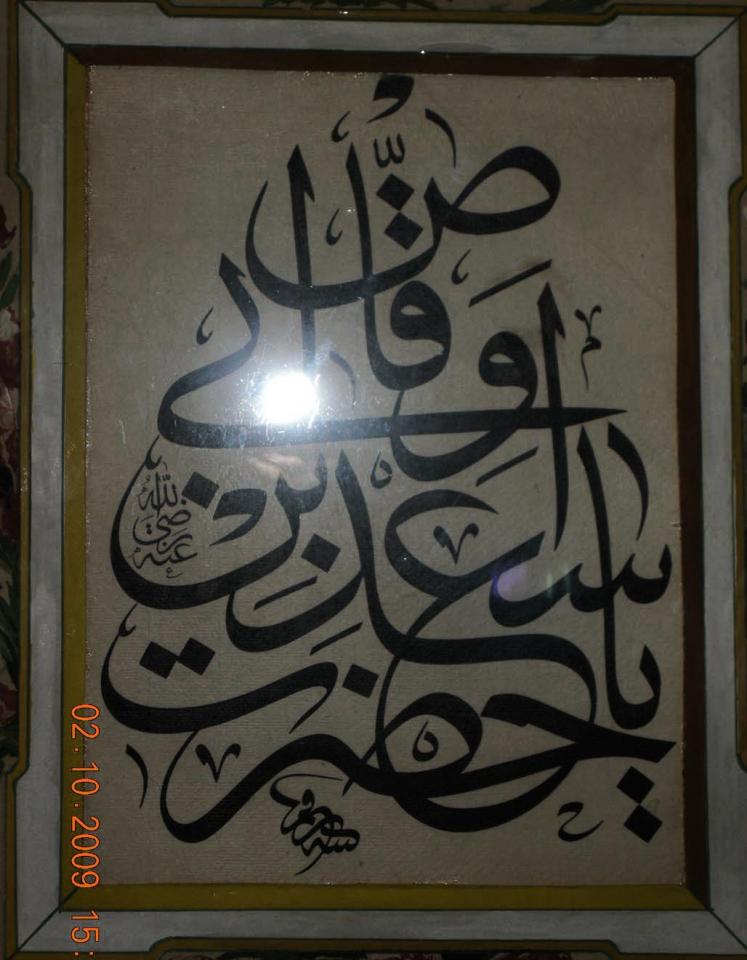 يا حضرت
سعد بن
ابى وقاص
رضي الله عنه
02.10.2009 15: